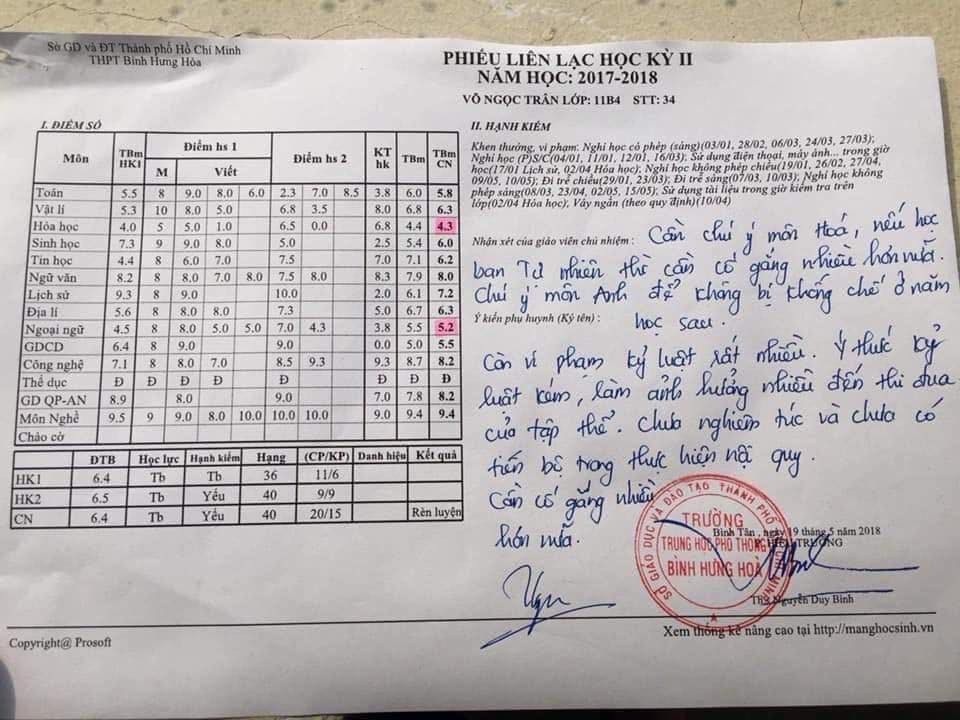 Sở GD và ĐT Thành phố Hồ Chí Minh
THPT Bình Hưng Hòa
PHIẾU LIÊN LẠC HỌC KỲ II
NĂM HỌC: 2017-2018
VÕ NGỌC TRÂN LỚP: 11B4 STT: 34
I. ĐIỂM SỐ
Môn TBm HK1 Điểm hs 1 Điểm hs 2 KT hk TBm TBm CN
M Viết
Toán 5.5 8 9.0 8.0 6.0 2.3 7.0 8.5 3.8 6.0 5.8
Vật lí 5.3 10 8.0 5.0 6.8 3.5 8.0 6.8 6.3
Hóa học 4.0 5 5.0 1.0 6.5 0.0 6.8 4.4 4.3
Sinh học 7.3 9 9.0 8.0 5.0 2.5 5.4 6.0
Tin học 4.4 8 6.0 7.0 7.5 7.0 7.1 6.2
Ngữ văn 8.2 8 8.0 7.0 8.0 7.5 8.0 8.3 7.9 8.0
Lịch sử 9.3 8 9.0 10.0 2.0 6.1 7.2
Địa lí 5.6 8 8.0 8.0 7.3 5.0 6.7 6.3
Ngoại ngữ 4.5 8 8.0 5.0 5.0 7.0 4.3 3.8 5.5 5.2
GDCD 6.4 8 9.0 9.0 0.0 5.0 5.5
Công nghệ 7.1 8 8.0 7.0 8.5 9.3 9.3 8.7 8.2
Thể dục Đ Đ Đ Đ Đ Đ Đ Đ
GD QP-AN 8.9 8.0 9.0 7.0 7.8 8.2
Môn Nghề 9.5 9 9.0 8.0 10.0 10.0 10.0 9.0 9.4 9.4
Chào cờ
ĐTB Học lực Hạnh kiểm Hạng (CP/KP) Danh hiệu Kết quả
HK1 6.4 Tb Tb 36 11/6
HK2 6.5 Tb Yếu 40 9/9
CN 6.4 Tb Yếu 40 20/15 Rèn luyện
II. HẠNH KIỂM
Khen thưởng, vi phạm: Nghỉ học có phép (sáng)(03/01, 28/02, 06/03, 24/03, 27/03);
Nghỉ học (P)S/C(04/01, 11/01, 12/01, 16/03); Sử dụng điện thoại, máy ảnh... trong giờ
học(17/01 Lịch sử, 02/04 Hóa học); Nghỉ học không phép chiều(19/01, 26/02, 27/04,
09/05, 10/05); Đi trễ chiều(29/01, 23/03); Đi trễ sáng(07/03, 10/03); Nghỉ học không
phép sáng(08/03, 23/04, 02/05, 15/05); Sử dụng tài liệu trong giờ kiểm tra trên
lớp(02/04 Hóa học), Váy ngắn (theo quy định)(10/04)
Nhận xét của giáo viên chủ nhiệm : Cần chú ý môn Hoá, nếu học
ban Tự nhiên thì cần cố gắng nhiều hơn nữa.
Chú ý môn Anh để không bị khống chế ở năm
Ý kiến phụ huynh (Ký tên) : học sau.
Còn vi phạm kỷ luật rất nhiều. Ý thức kỷ
luật kém, làm ảnh hưởng nhiều đến thi đua
của tập thể. Chưa nghiêm túc và chưa có
tiến bộ trong thực hiện nội quy.
Cần cố gắng nhiều
hơn nữa.
Bình Tân, ngày 19 tháng 5 năm 2018
HIỆU TRƯỞNG
SỞ GIÁO DỤC VÀ ĐÀO TẠO THÀNH PHỐ HỒ CHÍ MINH
TRƯỜNG
TRUNG HỌC PHỔ THÔNG
BÌNH HƯNG HOÀ
ThS Nguyễn Duy Bình
Copyright@ Prosoft
Xem thống kê nâng cao tại http://manghocsinh.vn